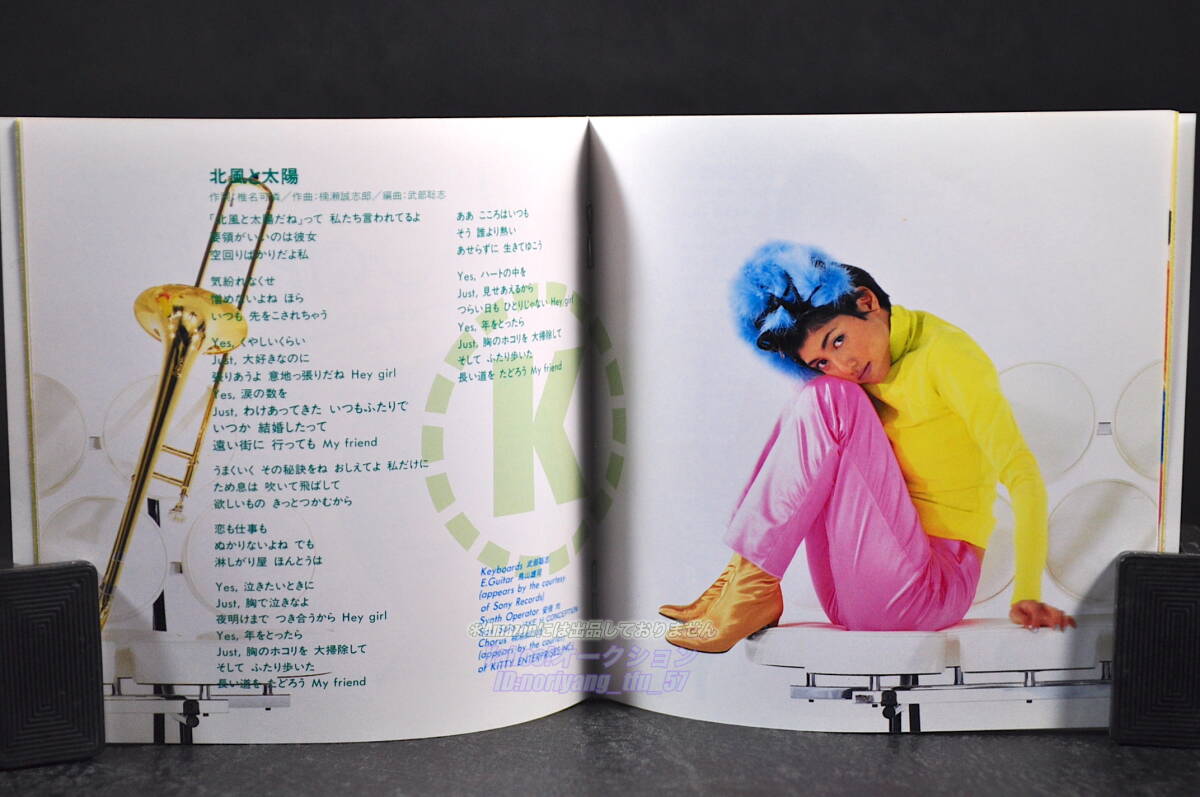 北風と太陽
作詞:椎名可憐／作曲:楠瀬誠志郎／編曲:武部聡志
「北風と太陽だね」って 私たち言われてるよ
要領がいいのは彼女
空回りばかりだよ私
気紛れなくせ
憎めないよね ほら
いつも 先をこされちゃう
Yes, くやしいくらい
Just, 大好きなのに
張りあうよ 意地っ張りだね Hey girl
Yes, 涙の数を
Just, わけあってきた いつもふたりで
いつか 結婚したって
遠い街に 行っても My friend
うまくいく その秘訣をね おしえてよ 私だけに
ため息は 吹いて飛ばして
欲しいもの きっとつかむから
恋も仕事も
ぬかりないよね でも
淋しがり屋 ほんとうは
Yes, 泣きたいときに
Just, 胸で泣きなよ
夜明けまで つき合うから Hey girl
Yes, 年をとったら
Just, 胸のホコリを 大掃除して
そして ふたり歩いた
長い道を たどろう My friend
ああ こころはいつも
そう 誰より熱い
あせらずに 生きてゆこう
Yes, ハートの中を
Just, 見せあえるから
つらい日も ひとりじゃない Hey girl
Yes, 年をとったら
Just, 胸のホコリを 大掃除して
そして ふたり歩いた
長い道を たどろう My friend
K
Keyboards 武部聡志
E.Guitar 鳥山雄司
(appears by the courtesy
of Sony Records)
Synth Operator
CONCEPTION
Chorus
(appears by the courtesy
of KITTY ENTERPRISES INC.
には出品しておりません
オークション
ID:noriyang_tfu_57